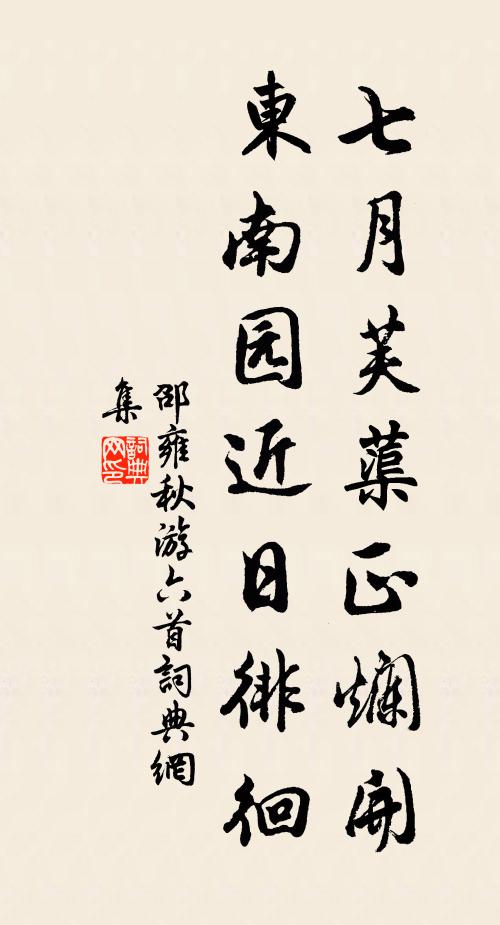 七月芙蕖正爛開
東南园近日徘徊
邵雍秋游六首詞典網
集
詞典网印